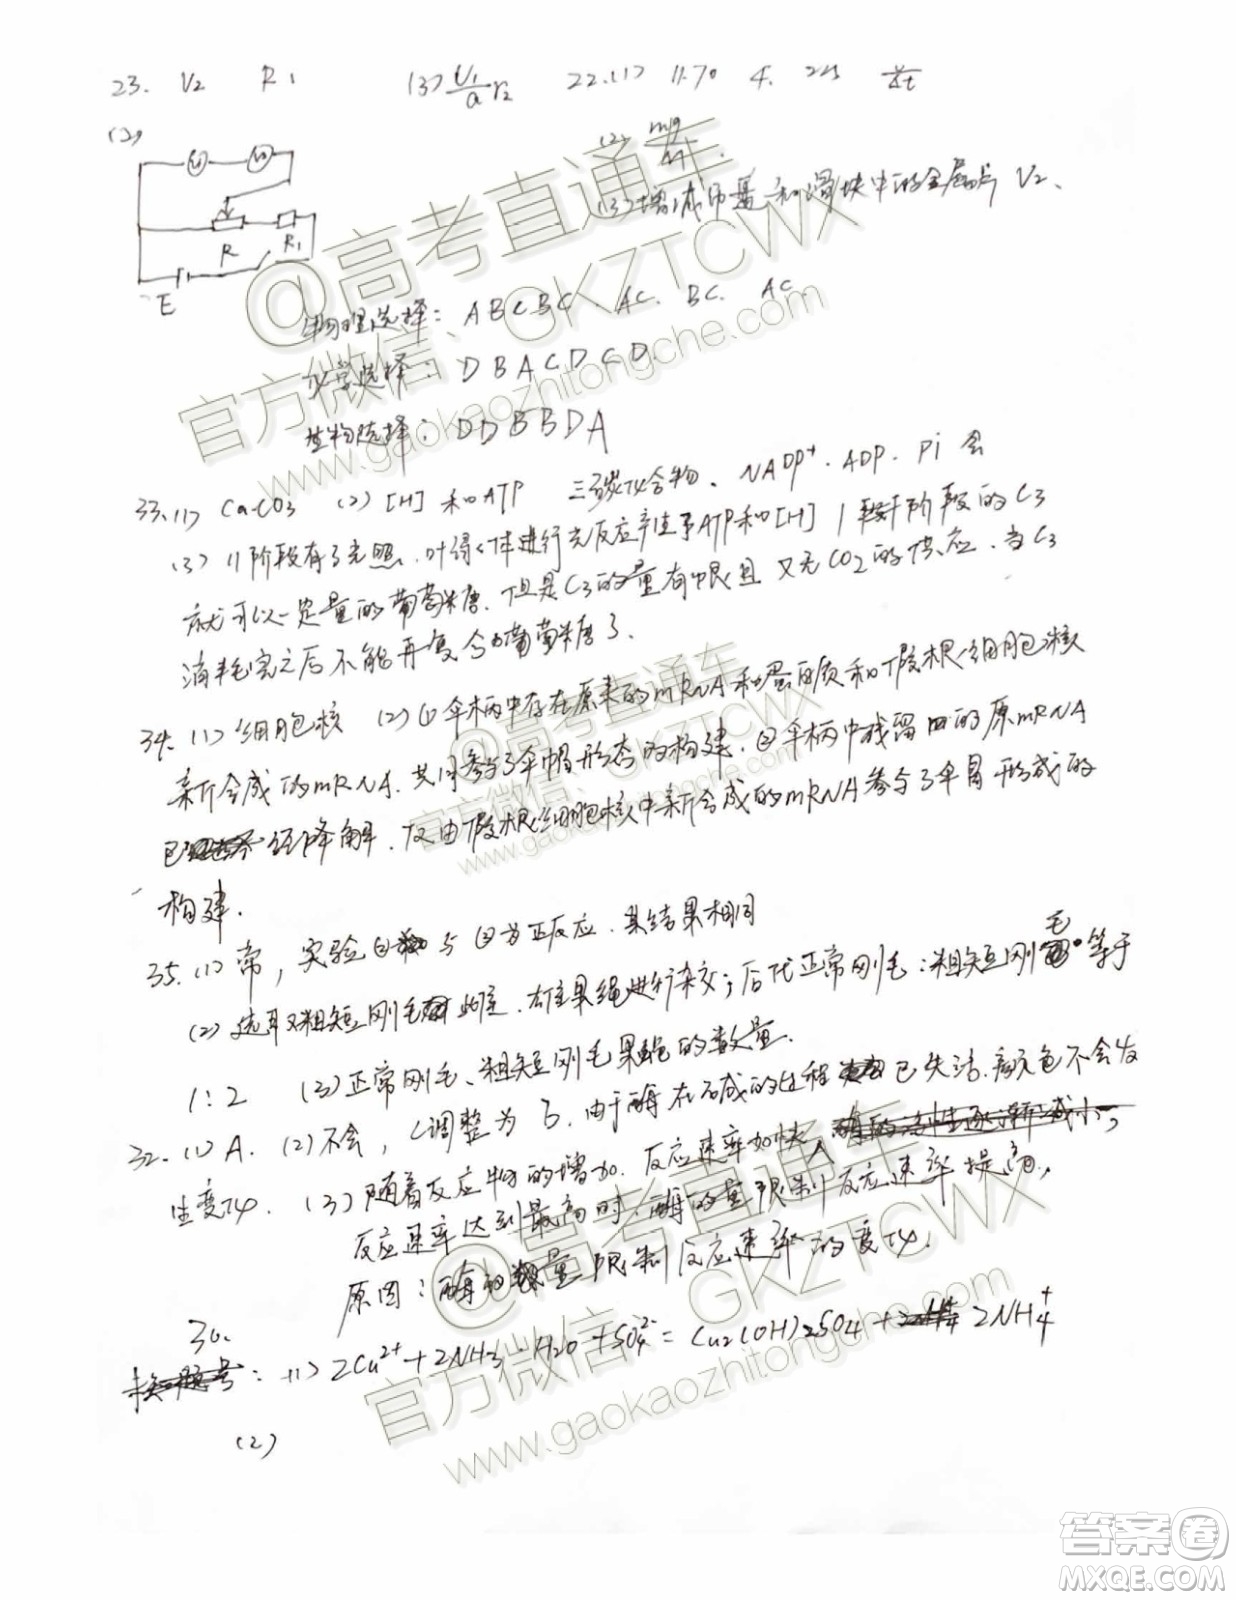 23. V₂ R₁ (3) U₁/a r₂ 22.(1) 11.70 4.
(2)
(2) mg/M
R R₁
E
(3)增减 和滑块中的金属片 V₂.
物理选择: ABCBC AC. BC. AC.
选择: DBACDCD.
生物选择: DDBBDA
33.(1) CaCO3 (2) [H] 和ATP 三碳化合物、NADP⁺. ADP. Pi 会
(3) II阶段有了光照. 叶绿体进行光反应产生了ATP和[H] 阶段的C3
就可以一定量的葡萄糖. 但是C3的量有限且又无CO2的供应. 当C3
消耗完之后不能再复合葡萄糖了.
34. (1)细胞核 (2)①伞柄中存在原来的mRNA和蛋白质和假根细胞核
新合成的mRNA. 共同参与了伞帽形态的构建. ②伞柄中残留的原mRNA
已 经降解. 仅由假根细胞核中新合成的mRNA参与了伞冒形成的
构建.
35. (1)常, 实验① 与②为正反应. 其结果相同
(2)选取粗短刚毛 雌. 雄果绳进行杂交; 后代正常刚毛:粗短刚毛 等于
1:2 (3)正常刚毛、粗短刚毛果蝇的数量.
32. (1) A. (2)不会, C调整为B. 由于酶在 碱的过程 已失活. 颜色不会发
生变化. (3)随着反应物的增加. 反应速率加快,
反应速率达到最高时. 酶的量限制反应速率提高.
原因: 酶的 量限制反应速率的变化.
30.
: (1) 2Cu²⁺+2NH3·H2O+SO4²⁻=Cu2(OH)2SO4+ 2NH4⁺
(2)
@高考直通车
官方微信: GKZTCWX
www.gaokaozhitongche.com
@高考直通车
官方微信: GKZTCWX
www.gaokaozhitongche.com
@高考直通车
官方微信: GKZTCWX
www.gaokaozhitongche.com
答案圈
MXQE.COM